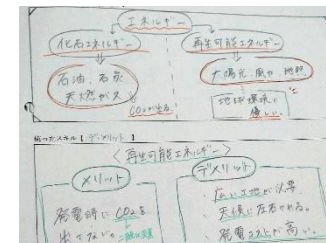 エネルギー
化石エネルギー
再生可能エネルギー
石油、石炭
天然ガス
CO2が出る。
太陽光、風力、地熱
地球環境に
優しい。
使ったスキル【デメリット】
<再生可能エネルギー>
メリット
デメリット
発電時にCO2を
出さない。
広い土地が必要。
天候に左右される。
発電コストが高い。